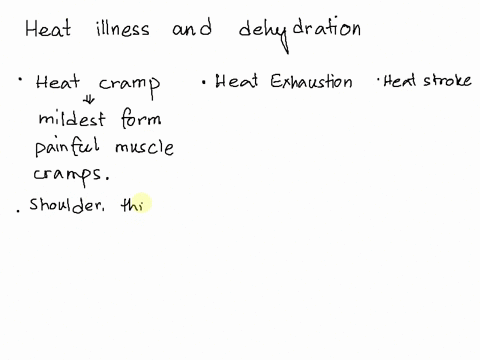 Heat illness and dehydration
• Heat cramp • Heat Exhaustion • Heat stroke
⇓
mildest form
painful muscle
cramps.
• Shoulder, thi